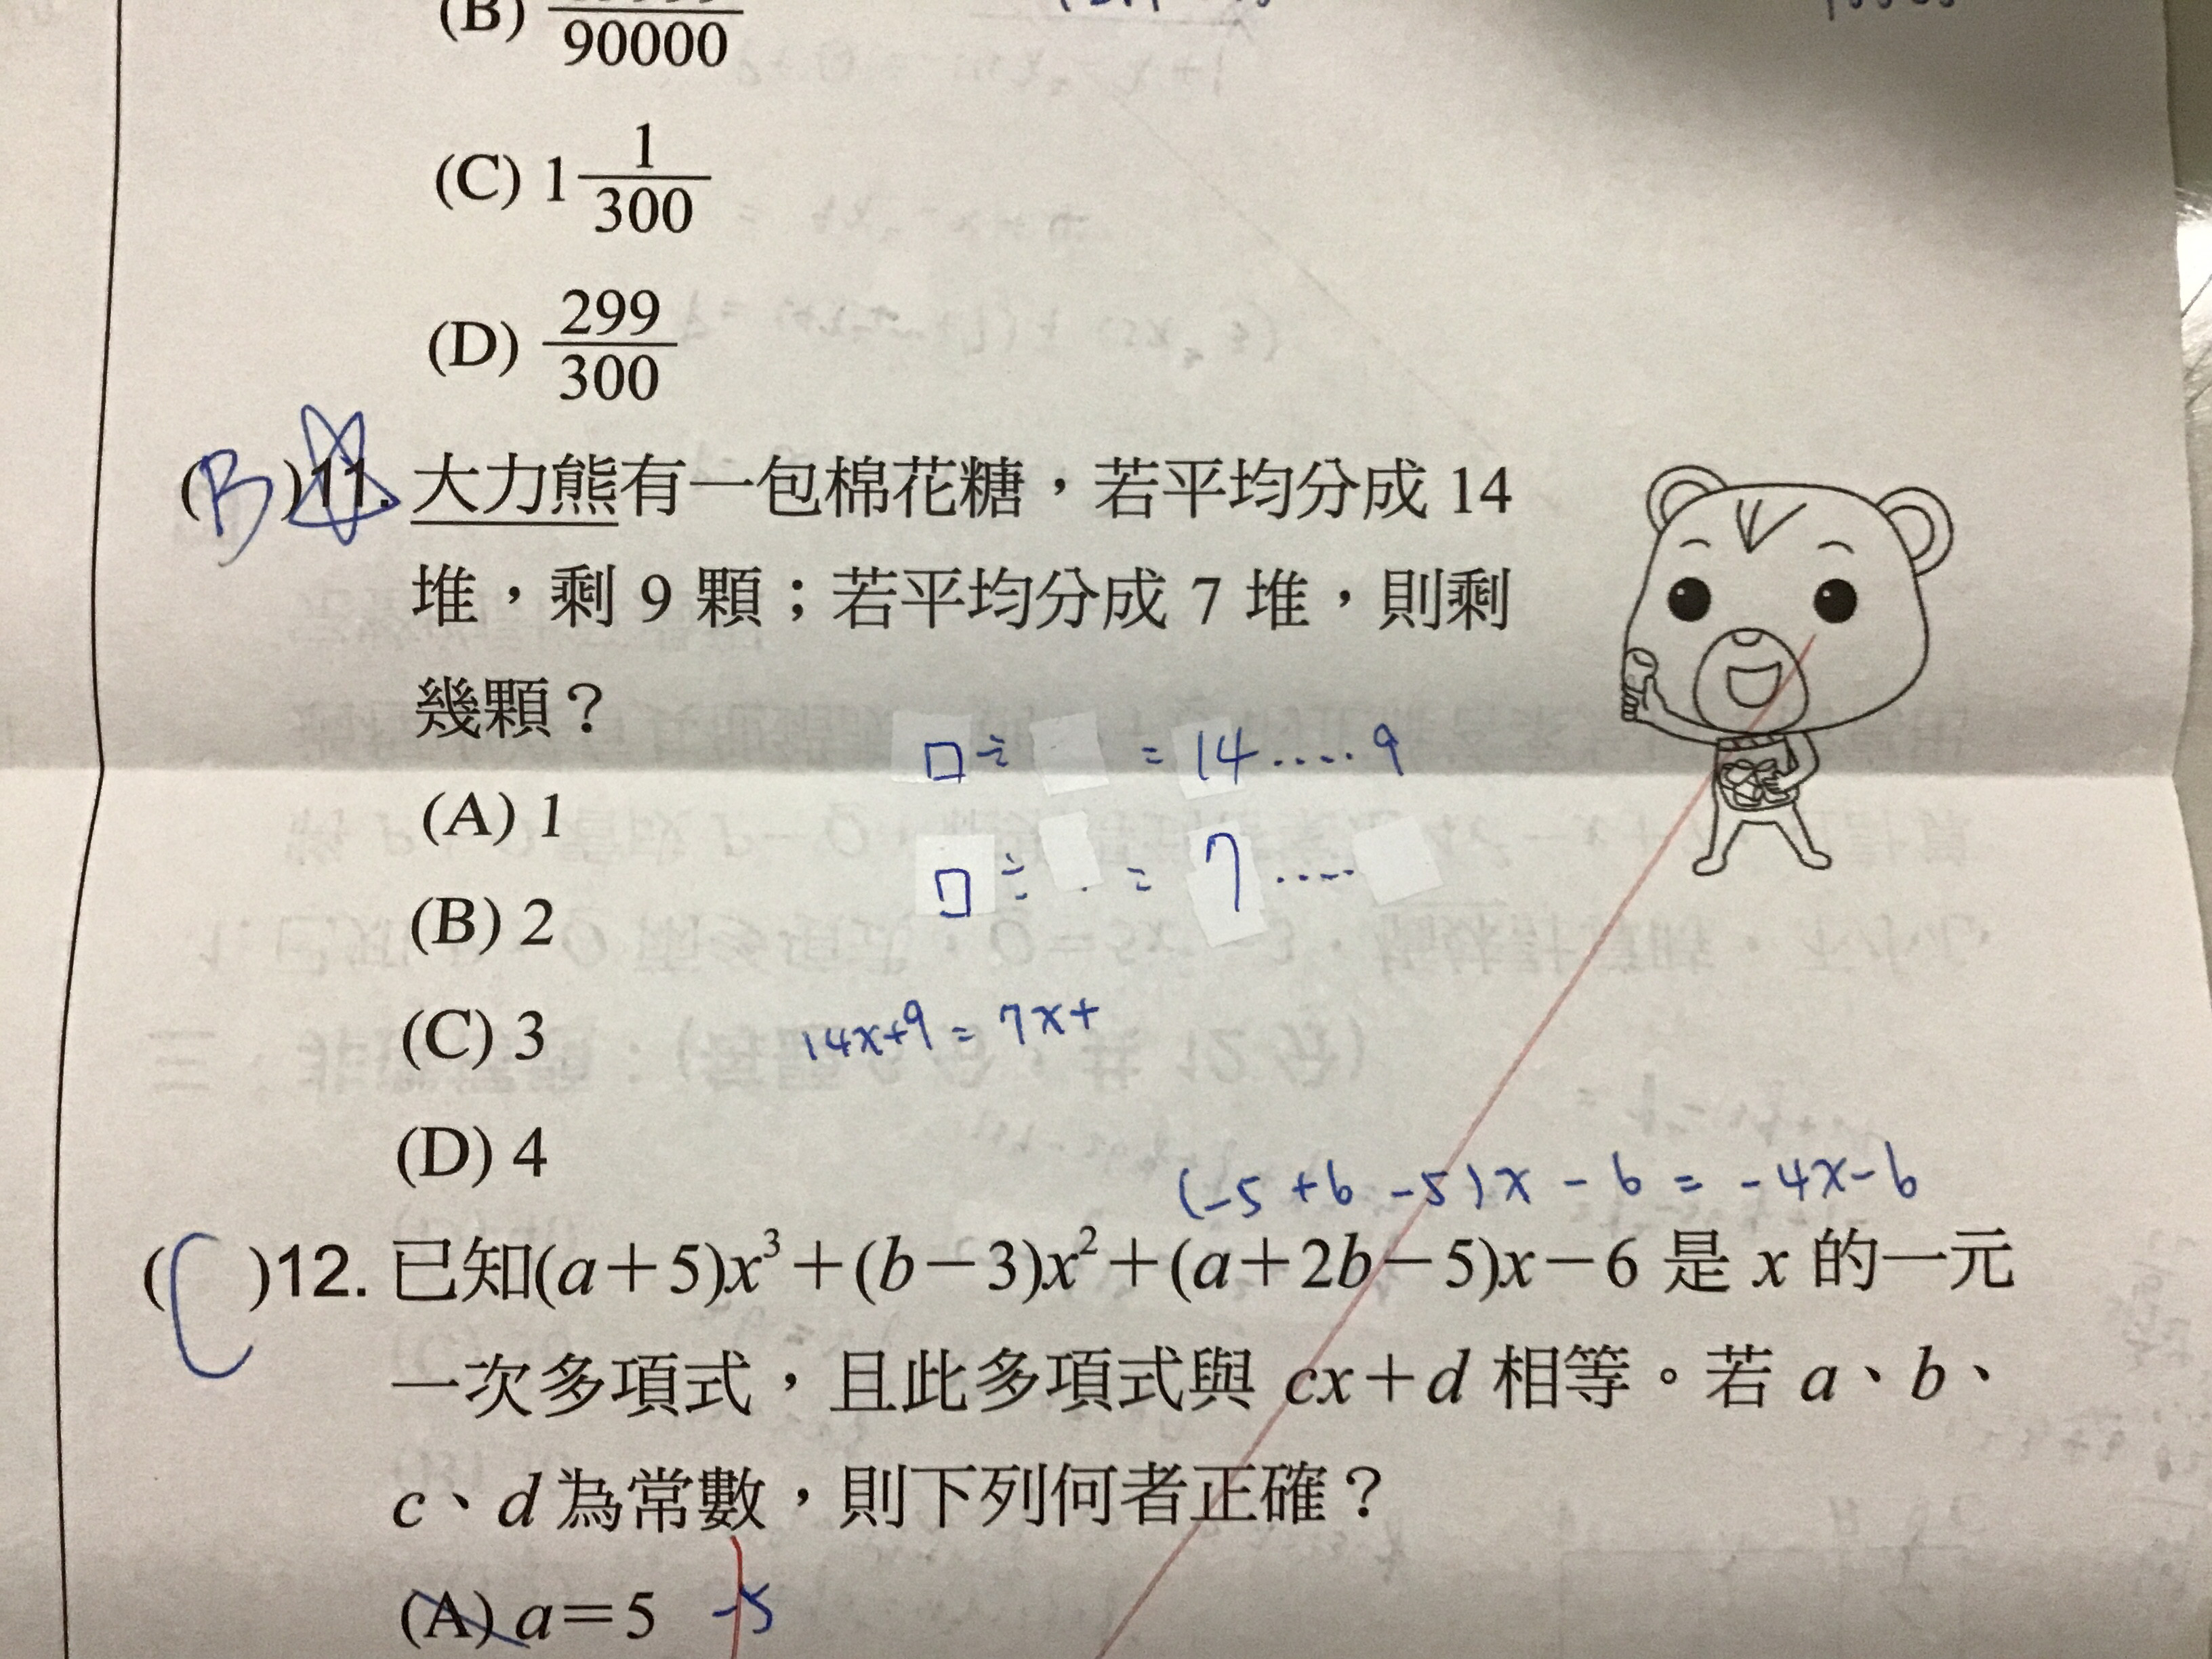 (B) 90000
(C) 1 1/300
(D) 299/300
(B)11. 大力熊有一包棉花糖，若平均分成 14
堆，剩 9 顆；若平均分成 7 堆，則剩
幾顆？
□÷ =14.....9
(A) 1
□÷ =7.....
(B) 2
(C) 3
14x+9=7x+
(D) 4
(-5+6-5)x-6=-4x-6
(C)12. 已知(a+5)x³+(b-3)x²+(a+2b-5)x-6 是 x 的一元
一次多項式，且此多項式與 cx+d 相等。若 a、b、
c、d 為常數，則下列何者正確？
(A) a=5 -5